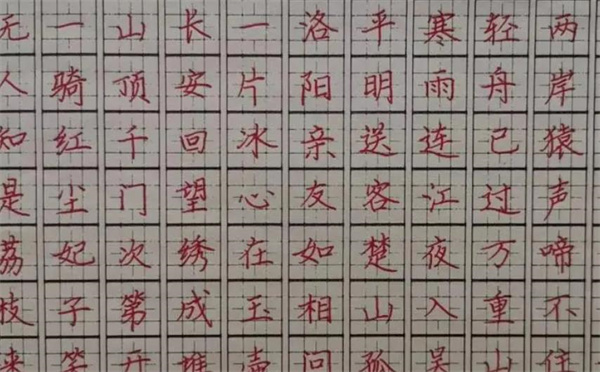 两岸猿声啼不住
轻舟已过万重山
寒雨连江夜入吴
平明送客楚山孤
洛阳亲友如相问
一片冰心在玉壶
长安回望绣成堆
山顶千门次第开
一骑红尘妃子笑
无人知是荔枝来